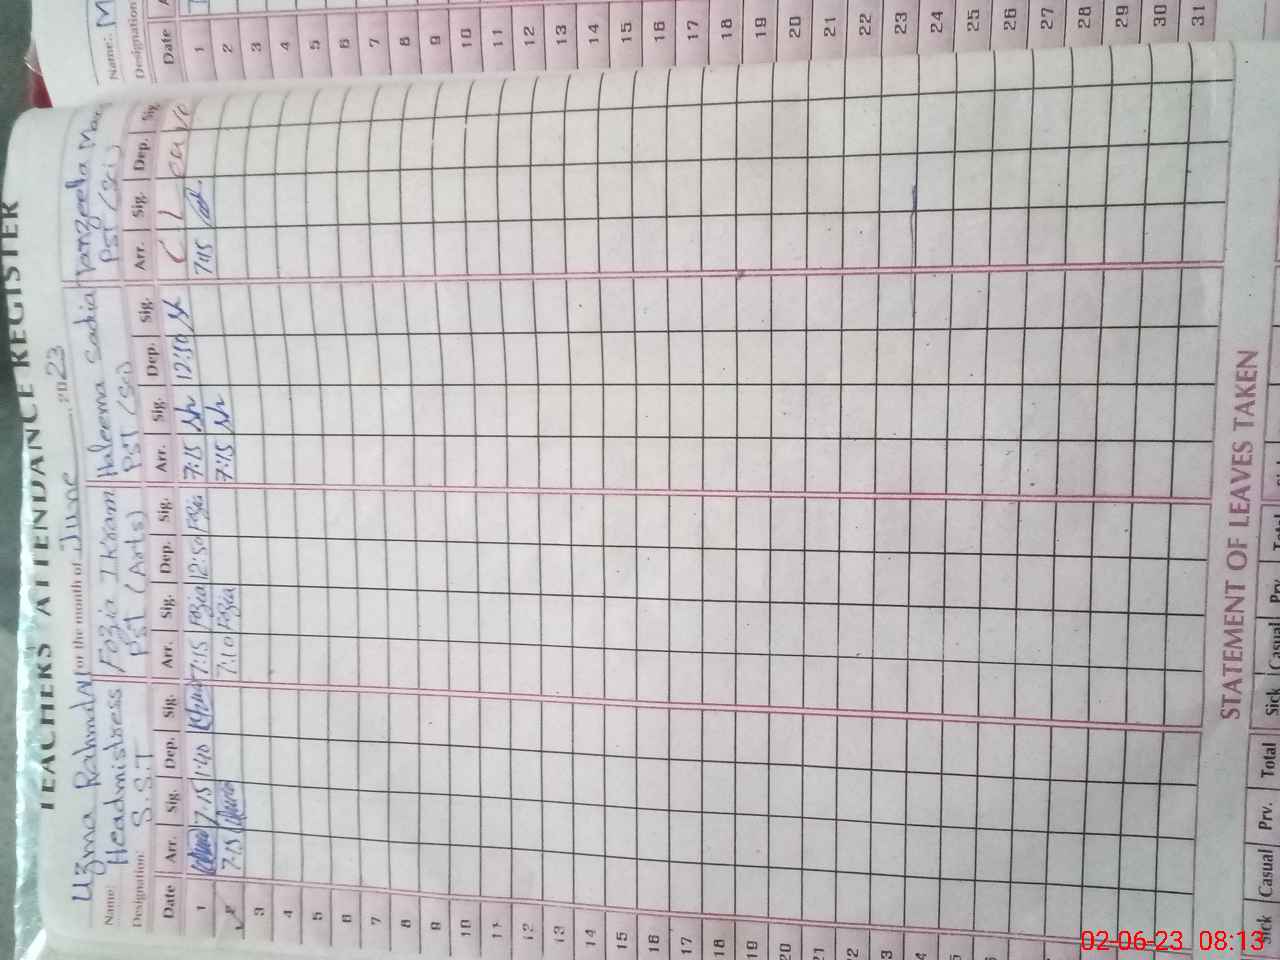 TEACHERS ATTENDANCE REGISTER
For the month of June 2023
Name: Uzma Rahmdal Fozia Ikram Haleema Sadia Tanzeela
Designation: Headmistress S.S.T PST (Arts) PST (Sci) PST (Sci)
Date Arr. Sig. Dep. Sig. Arr. Sig. Dep. Sig. Arr. Sig. Dep. Sig. Arr. Sig. Dep. Sig.
1 7:15 1:40 7:15 Fozia 12:50 Fozia 7:15 12:50 C Leave
2 7:15 7:10 Fozia 7:15 7:15
3
4
5
6
7
8
9
10
11
12
13
14
15
16
17
18
19
20
21
22
23
24
25
26
27
28
29
30
31
STATEMENT OF LEAVES TAKEN
Sick Casual Prv. Total Sick Casual Prv. Total
Name: M
Designation
Date
1
2
3
4
5
6
7
8
9
10
11
12
13
14
15
16
17
18
19
20
21
22
23
24
25
26
27
28
29
30
31
02-06-23 08:13